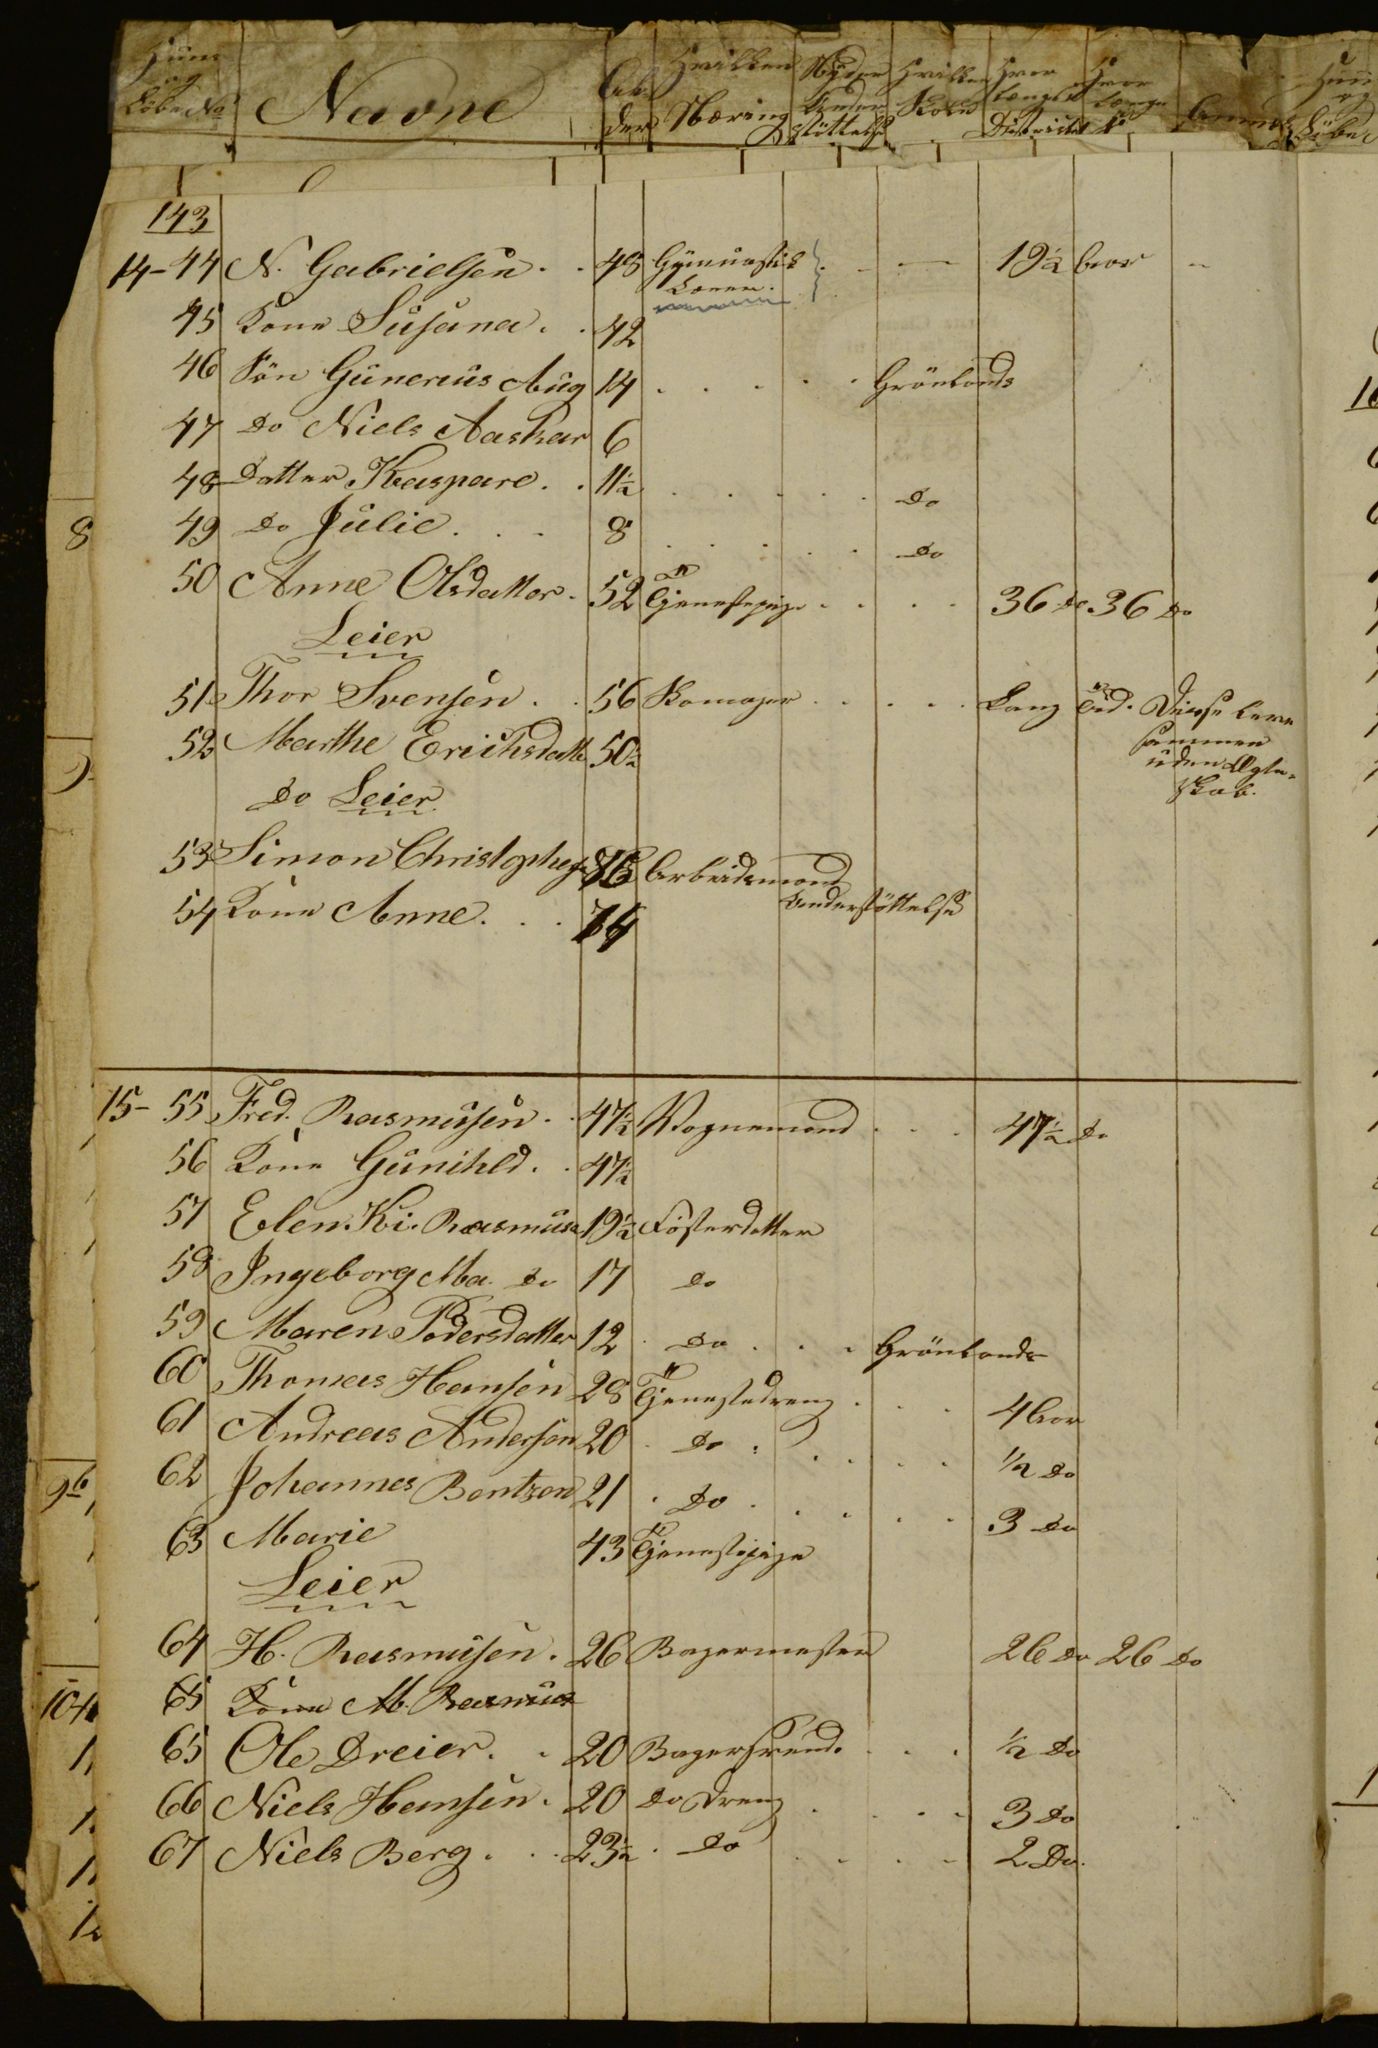 Huus og Löbe No Navne Alder Hvilken Næring Nyder Understöttelse Hvilken Skole Hvor længe i Districtet Hvor længe
143
14- 44 N. Gabrielsen . . 48 Gymnastik . . — 19½ Aar -
Lærer.
45 Kone Susana . . 42
46 Sön Gunerius Aug 14 . . . . . Grönlands
47 Do Niels Aaskar 6
48 Datter Kaspare . . 11½ . . . . . Do
49 Do Julie . . . 8 . . . . . Do
50 Anne Olsdatter . 52 Tjenestepige . . . . 36 Do 36 Do
Leier
51 Thor Svensen . . 56 Skomager . . . . . Lang Tid. Disse leve
52 Marthe Erichsdatte 50½ sammen
uden Ægte-
Do Leier skab.
53 Simon Christophers 76 Arbeidsmand
54 Kone Anne . . . 74 Understöttelse
15- 55 Fred. Rasmusen . . 47½ Vognmand . . . 47½ Do
56 Kone Gunihld . . 47½
57 Elen Ki. Rasmuse 19½ Fosterdatter
58 Ingeborg Ma. Do 17 Do
59 Maren Pedersdatter 12 . Do . . . Grönlands
60 Thomas Hansen 28 Tjenestedreng . . . 4 Aar
61 Andreas Andersen 20 . Do . . . . . ½ Do
62 Johannes Bentzen 21 . Do . . . . . 3 Do
63 Marie 43 Tjenestepige
Leier
64 H. Rasmusen . 26 Bagermester 26 Do 26 Do
65 Kone M. Rasmus
65 Ole Dreier . . 20 Bagersvend . . . ½ Do
66 Niels Hansen . 20 Do Dreng . . . . 3 Do
67 Niels Berg . . . 23½ . Do . . . . 2 Do.